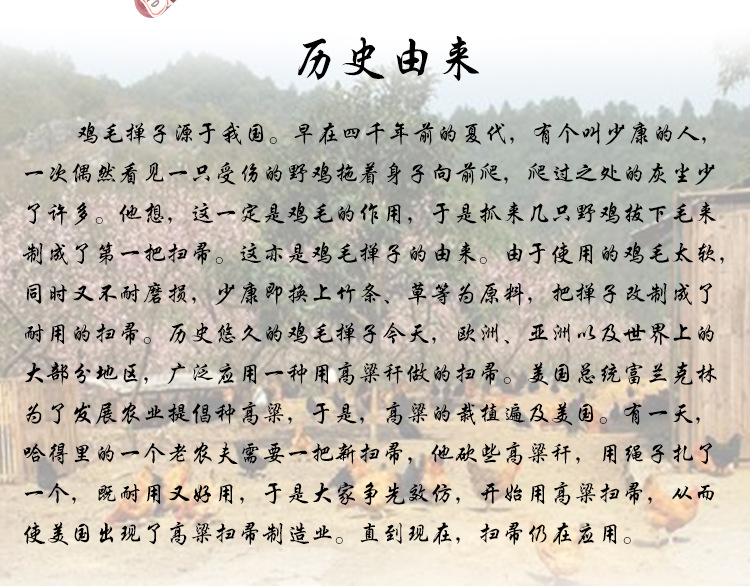 历史由来
鸡毛掸子源于我国。早在四千年前的夏代，有个叫少康的人，
一次偶然看见一只受伤的野鸡拖着身子向前爬，爬过之处的灰尘少
了许多。他想，这一定是鸡毛的作用，于是抓来几只野鸡拔下毛来
制成了第一把扫帚。这亦是鸡毛掸子的由来。由于使用的鸡毛太软，
同时又不耐磨损，少康即换上竹条、草等为原料，把掸子改制成了
耐用的扫帚。历史悠久的鸡毛掸子今天，欧洲、亚洲以及世界上的
大部分地区，广泛应用一种用高粱秆做的扫帚。美国总统富兰克林
为了发展农业提倡种高粱，于是，高粱的栽植遍及美国。有一天，
哈得里的一个老农夫需要一把新扫帚，他砍些高粱秆，用绳子扎了
一个，既耐用又好用，于是大家争先效仿，开始用高粱扫帚，从而
使美国出现了高粱扫帚制造业。直到现在，扫帚仍在应用。